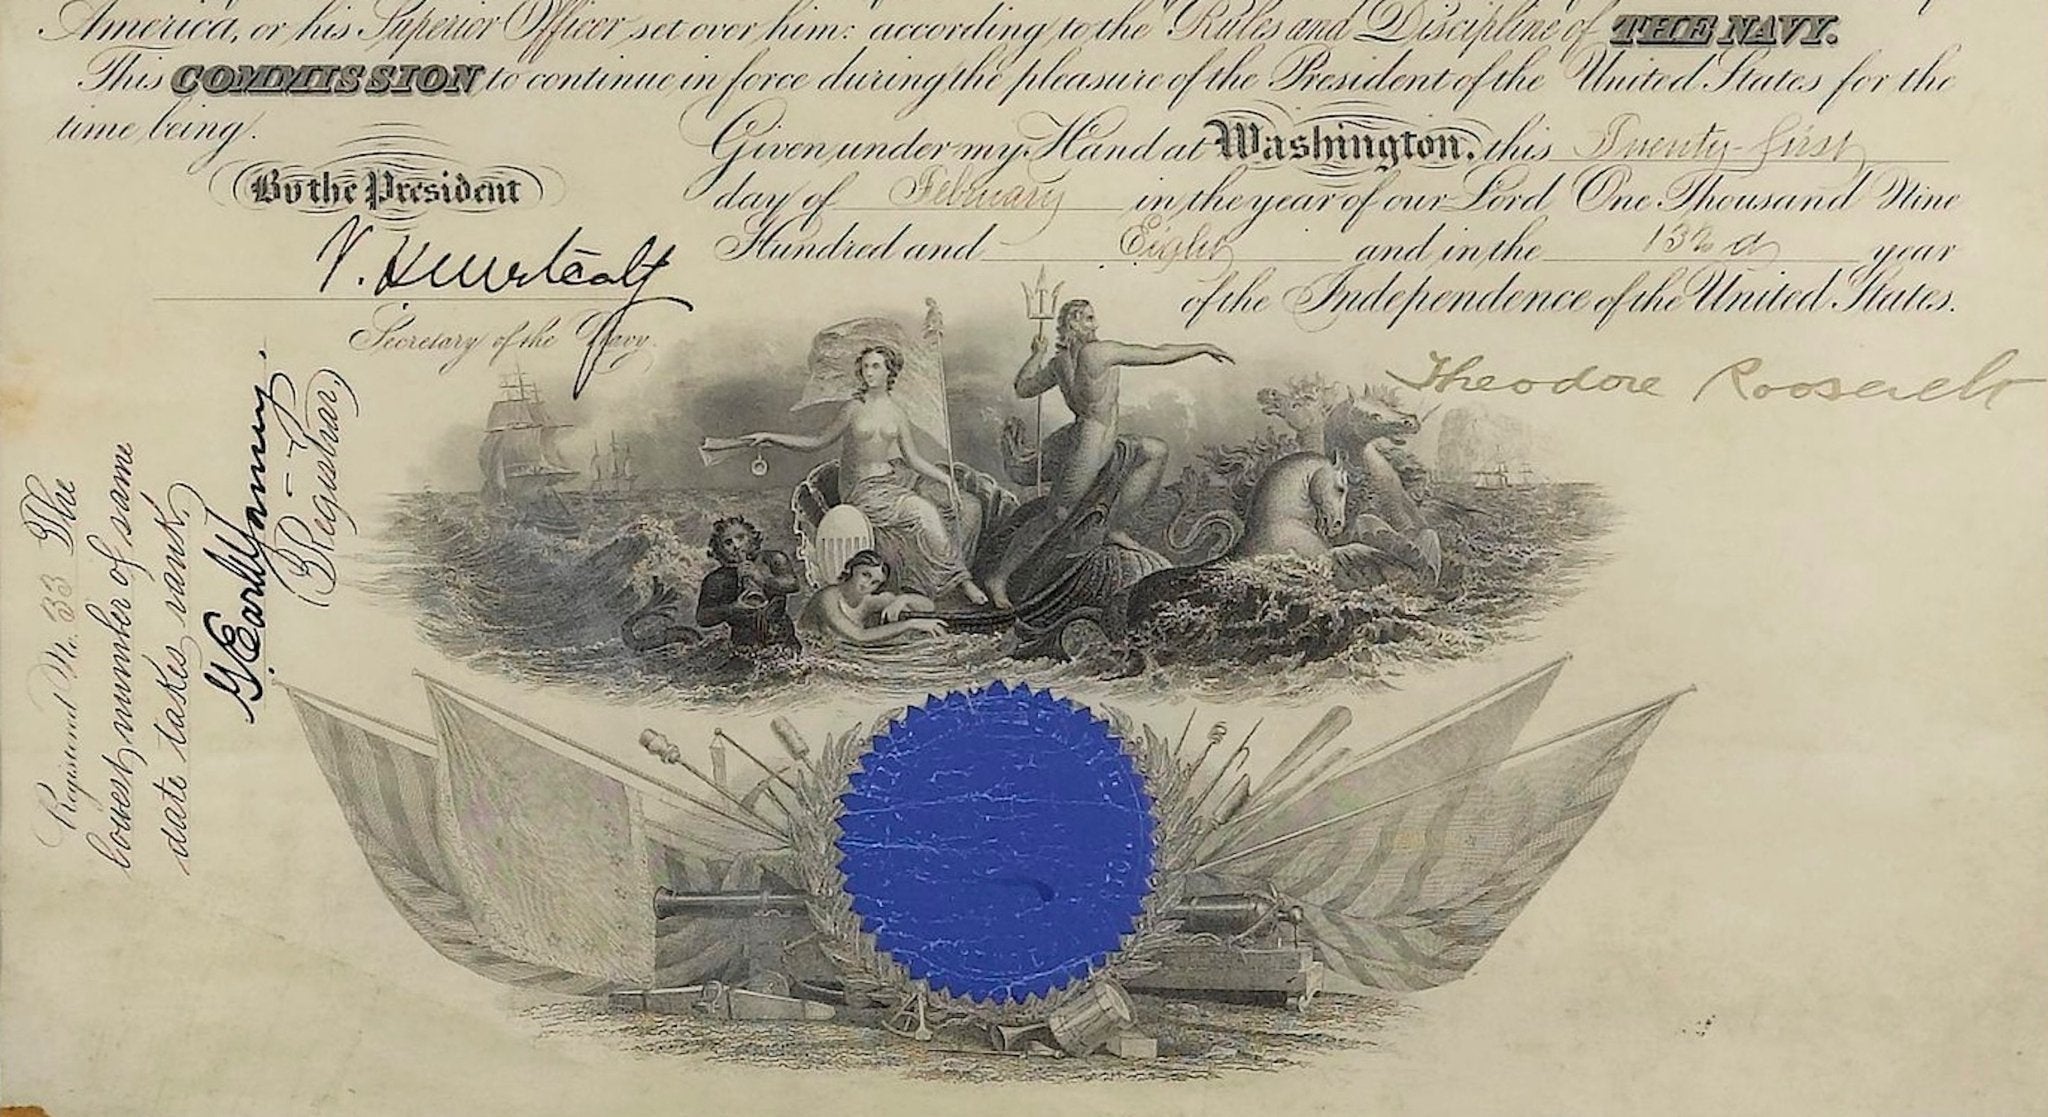 America, or his Superior Officer set over him: according to the Rules and Discipline of THE NAVY.
This COMMISSION to continue in force during the pleasure of the President of the United States for the
time being.
Given under my Hand at Washington, this Twenty-first
By the President
day of February in the year of our Lord One Thousand Nine
Hundred and Eight and in the 132d year
of the Independence of the United States.
V. H. Metcalf
Secretary of the Navy.
Theodore Roosevelt
Registered No. 33 The
lowest number of same
date takes rank.
(Registrar.)